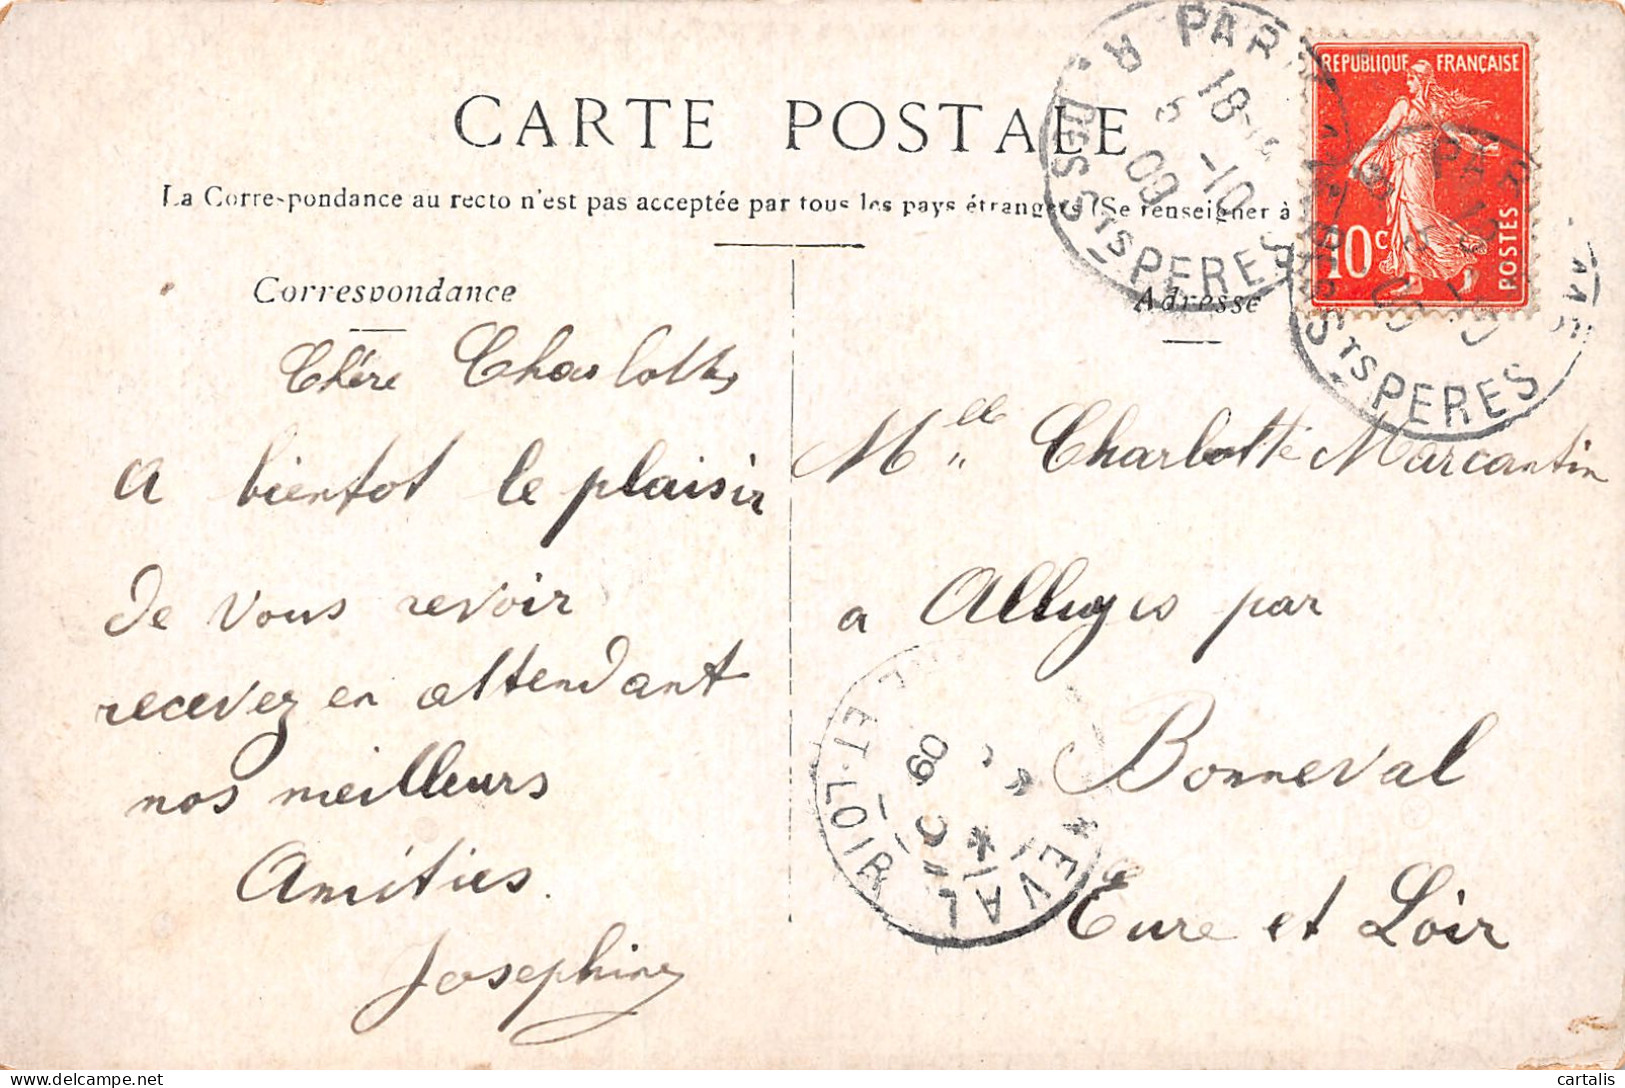 CARTE POSTALE
La Correspondance au recto n'est pas acceptée par tous les pays étrangers (Se renseigner à
REPUBLIQUE FRANÇAISE
10c POSTES
R. DES STS PERES
18 10
09
STS PERES
Correspondance
Chère Charlotte
a bientot le plaisir
de vous revoir
recevez en attendant
nos meilleurs
Amitiés.
Josephine
Adresse
Melle Charlotte Marcantin
a Alluyes par
Bonneval
Eure et Loir
ET-LOIR
09
EVAL
cartalis